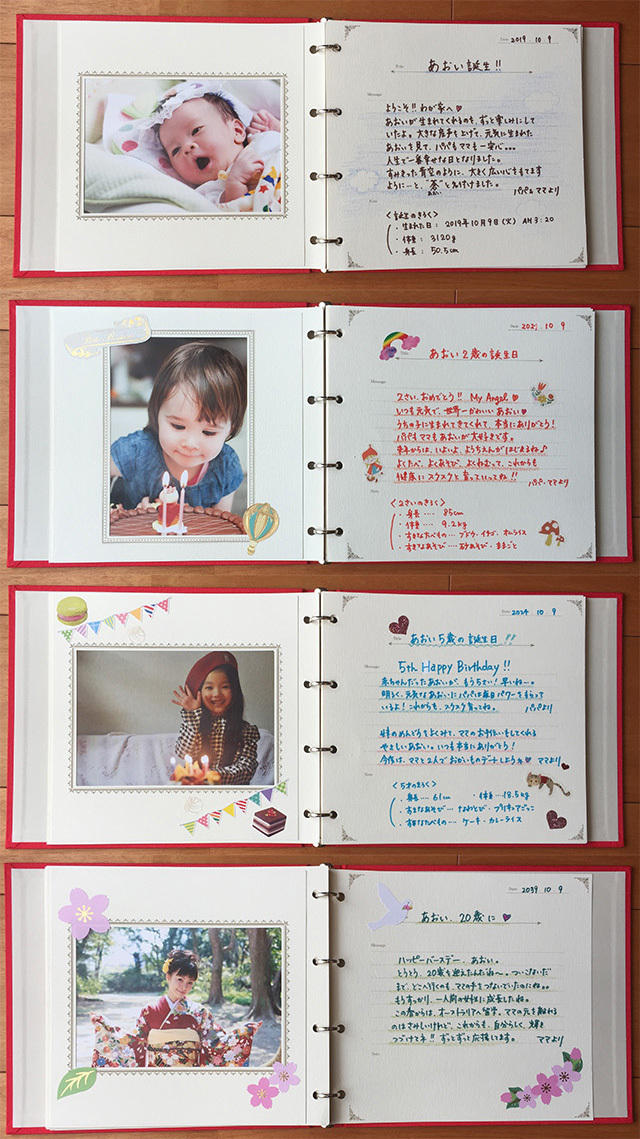 Date 2019. 10. 9
Title あおい誕生!!
Message
ようこそ!! わが家へ♥
あおいが生まれてくれるのを、ずっと楽しみにして
いたよ。大きな産声を上げて、元気に生まれた
あおいを見て、パパもママも一安心。。。
人生で一番幸せな日となりました。
すみきった青空のように、大きく広い心をもてます
ようにーと、"葵"と名付けました。
あおい
パパ&ママより
Note
<誕生のきろく>
・生まれた日 : 2019年10月9日(火) AM 3:20
・体重 : 3120g
・身長 : 50.5cm
Date 2021. 10. 9
Title あおい2歳の誕生日
Message
2さい、おめでとう!! My Angel♥
いつも元気で、世界一かわいいあおい♥
うちの子に生まれてきてくれて、本当にありがとう!
パパもママもあおいが大好きです。
来年からは、いよいよ、ようちえんがはじまるね♪
よくたべ、よくあそび、よくねむって、これからも
健康にスクスクと育っていってね!!
パパ・ママより
Note
<2さいのきろく>
・身長 … 85cm
・体重 … 9.2kg
・すきなたべもの … ブドウ・イチゴ・オムライス
・すきなあそび … すなあそび・ままごと
Date 2024 10. 9
Title あおい5歳の誕生日!!
Message
5th Happy Birthday!!
赤ちゃんだったあおいが、もう5さい! 早いねー。
明るく、元気なあおいにパパは毎日パワーをもらって
いるよ! これからも、スクスク育ってね。
パパより
妹のめんどうをよくみて、ママのお手伝いをしてくれる
やさしいあおい。いつも本当にありがとう!
今度は、ママと2人でおかいものデートしようね♥ ママより
<5才のきろく>
・身長 … 61cm ・体重 … 18.5kg
・すきなあそび … なわとび・プリキュアごっこ
・すきなたべもの … ケーキ・カレーライス
Date 2039 10. 9
あおい、20歳に♥
Message
ハッピーバースデー、あおい。
とうとう、20歳を迎えたんだね〜。ついこないだ
まで、どこへ行くのも、ママの手をつないでいたのにね。。
もうすっかり、一人前の女性に成長したね。
この春からは、オーストラリアへ留学。ママの元を離れる
のはさみしいけれど、これからも、自分らしく、輝き
つづけてネ!! ずっとずっと応援してます。
ママより
Note